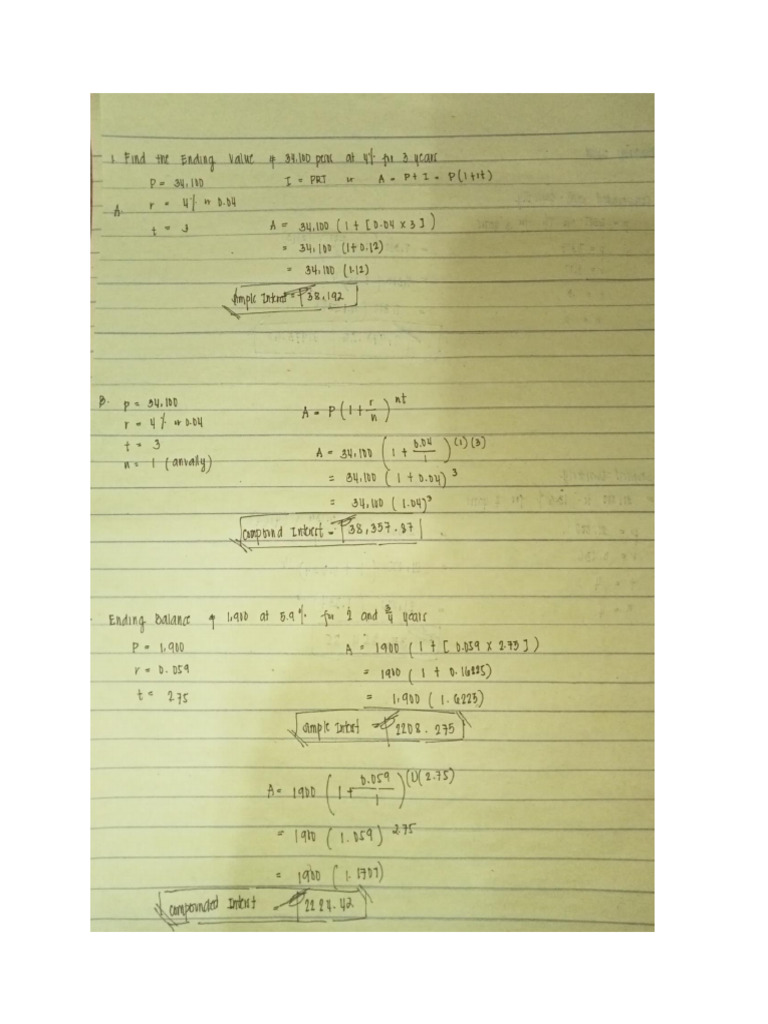 1. Find the Ending Value of 34,100 pesos at 4% for 3 years
P = 34,100 I = PRT or A = P + I = P(1+rt)
A. r = 4% or 0.04
t = 3 A = 34,100 (1 + [0.04 x 3])
= 34,100 (1+0.12)
= 34,100 (1.12)
Simple Interest = ₱38,192
B. P = 34,100
r = 4% or 0.04 A = P(1 + r/n)^nt
t = 3 A = 34,100 (1 + 0.04/1)^(1)(3)
n = 1 (anually) = 34,100 (1 + 0.04)^3
= 34,100 (1.04)^3
Compound Interest = ₱38,357.87
Ending Balance of 1,900 at 5.9% for 2 and 3/4 years
P = 1,900 A = 1900 (1 + [0.059 x 2.75])
r = 0.059 = 1900 (1 + 0.16225)
t = 2.75 = 1,900 (1.6225)
Simple Interst = ₱2208.275
A = 1900 (1 + 0.059/1)^(1)(2.75)
= 1900 (1.059)^2.75
= 1900 (1.1707)
Compounded Interst = ₱2224.42